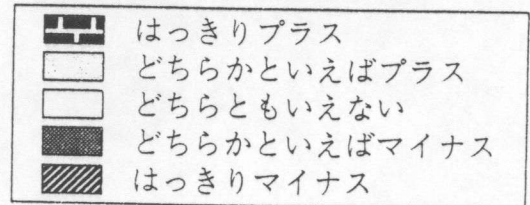 はっきりプラス
どちらかといえばプラス
どちらともいえない
どちらかといえばマイナス
はっきりマイナス